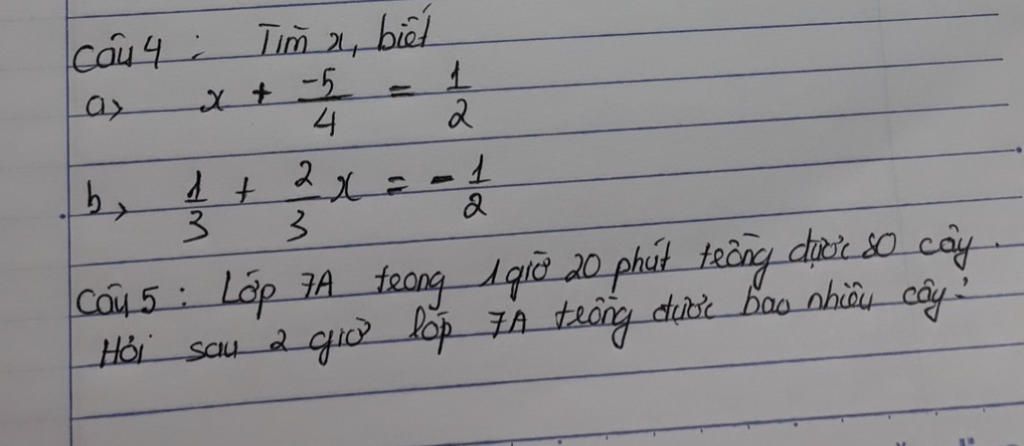 Câu 4 : Tìm x, biết
a, x + \frac{-5}{4} = \frac{1}{2}
b, \frac{1}{3} + \frac{2}{3}x = -\frac{1}{2}
Câu 5 : Lớp 7A trong 1 giờ 20 phút trồng được 80 cây .
Hỏi sau 2 giờ lớp 7A trồng được bao nhiêu cây :